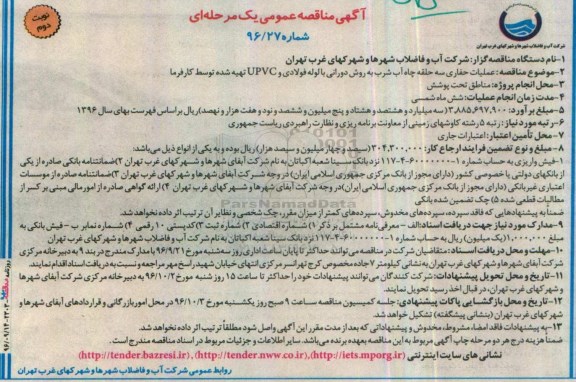 آگهی مناقصه عمومی یک مرحله‌ای
شماره ۹۶/۲۷
نوبت دوم
شرکت آب و فاضلاب شهرها و شهرکهای غرب تهران
۱-نام دستگاه مناقصه گزار: شرکت آب و فاضلاب شهرها و شهرکهای غرب تهران
۲-موضوع مناقصه: عملیات حفاری سه حلقه چاه آب شرب به روش دورانی با لوله فولادی و UPVC تهیه شده توسط کارفرما
۳-محل انجام پروژه: مناطق تحت پوشش
۴-مدت زمان انجام عملیات: شش ماه شمسی
۵-مبلغ برآورد: ۳,۸۸۵,۶۹۷,۹۰۰ (سه میلیارد و هشتصد و هشتاد و پنج میلیون و ششصد و نود و هفت هزار و نهصد) ریال براساس فهرست بهای سال ۱۳۹۶
۶-رتبه مورد نیاز: رتبه ۵ رشته کاوشهای زمینی از معاونت برنامه ریزی و نظارت راهبردی ریاست جمهوری
۷-محل تأمین اعتبار: اعتبارات جاری
۸-مبلغ و نوع تضمین فرایند ارجاع کار: ۳۰۴,۳۰۰,۰۰۰ (سیصد و چهار میلیون و سیصد هزار) ریال بوده و به یکی از انواع ذیل می‌باشد:
۱-فیش واریزی به حساب شماره ۱-۶۰۰۰۰۰۰-۴-۱۱۷ نزد بانک سینا شعبه اکباتان به نام شرکت آبفای شهرها و شهرکهای غرب تهران ۲)ضمانتنامه بانکی صادره از یکی
از بانکهای دولتی یا خصوصی کشور (دارای مجوز از بانک مرکزی جمهوری اسلامی ایران) در وجه شرکت آبفای شهرها و شهرکهای غرب تهران ۳)ضمانتنامه صادره از موسسات
اعتباری غیربانکی (دارای مجوز از بانک مرکزی جمهوری اسلامی ایران) در وجه شرکت آبفای شهرها و شهرکهای غرب تهران ۴) ارائه گواهی صادره از امور مالی مبنی بر کسر از
مطالبات قطعی شده ۵) چک تضمین شده بانکی
ضمناً به پیشنهادهایی که فاقد سپرده، سپرده‌های مخدوش، سپرده‌های کمتر از میزان مقرر، چک شخصی و نظایر آن ترتیب اثر داده نخواهد شد.
۹-مدارک مورد نیاز جهت دریافت اسناد: الف – معرفی‌نامه مشتمل بر ذکر ۱) شماره اقتصادی ۲) شماره ثبت ۳)کدپستی ۱۰ رقمی ۴) شماره نمابر ب - فیش بانکی به
مبلغ ۱,۰۰۰,۰۰۰ (یک میلیون) ریال به حساب شماره ۱-۶۰۰۰۰۰۰-۴-۱۱۷ نزد بانک سینا شعبه اکباتان به نام شرکت آبفای شهرها و شهرکهای غرب تهران
۱۰-مهلت و محل دریافت اسناد: متقاضیان شرکت در مناقصه می‌توانند حداکثر تا پایان ساعت اداری روز سه‌شنبه مورخ ۹۶/۹/۲۱ با مدارک مندرج در بند ۹ به دبیرخانه مرکزی
شرکت آبفای شهرها و شهرکهای غرب تهران به نشانی کیلومتر ۷ جاده مخصوص کرج تهرانسر مرکزی انتهای خیابان شهید راسخ مهر مراجعه و نسبت به دریافت اسناد اقدام نمایند.
۱۱-تاریخ و محل تحویل پیشنهادات: شرکت کنندگان می‌توانند پیشنهادات خود را حداکثر تا ساعت ۱۵ روز شنبه مورخ ۹۶/۱۰/۲ به دبیرخانه مرکزی شرکت آبفای شهرها
و شهرکهای غرب تهران، در قبال اخذ رسید تحویل نمایند.
۱۲-تاریخ و محل بازگشایی پاکات پیشنهادی: جلسه کمیسیون مناقصه ساعت ۹ صبح روز یکشنبه مورخ ۹۶/۱۰/۳ در محل امور بازرگانی و قراردادهای آبفای شهرها و
شهرکهای غرب تهران (بنشانی پیشگفته) تشکیل خواهد شد.
۱۳-به پیشنهادات فاقد امضاء، مشروط، مخدوش و پیشنهاداتی که بعد از مدت مقرر این آگهی واصل شود مطلقاً ترتیب اثر داده نخواهد شد.
ضمناً هزینه درج هر دو مرحله چاپ آگهی مربوط به این مناقصه بعهده برنده می‌باشد. سایر اطلاعات و جزئیات مربوط در اسناد مناقصه مندرج است.
نشانی های سایت اینترنتی (http://iets.mporg.ir)، (http://tender.nww.co.ir)، (http://tender.bazresi.ir)
روابط عمومی شرکت آب و فاضلاب شهرها و شهرکهای غرب تهران
ParsNamadData